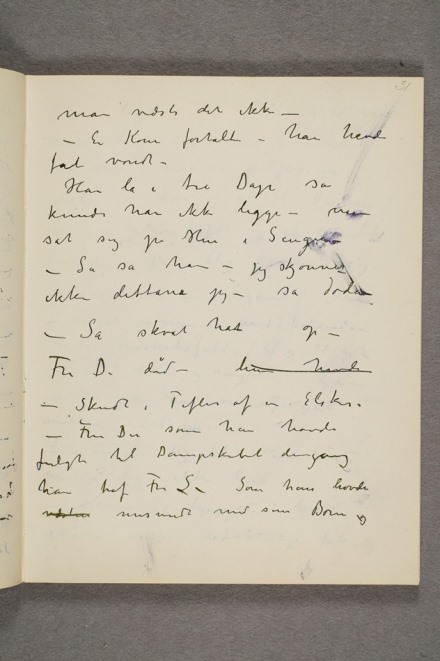 31
man vidste det ikke –
– En Kone fortalte – han havde
fåt vondt –
Han lå i tre Dage så
kunde han ikke ligge – men
sat sig på Huk i Sengen
– Så sa han – jeg skjønner
ikke dettane jeg – så døde
– Så skvat han op –
Fru D. død – han havde
– Skudt i Tiflis af en Elsker.
– Fru Du som han havde
fulgte til Dampskibet dengang
han traf Fru L – Som han havde
med som Børn og